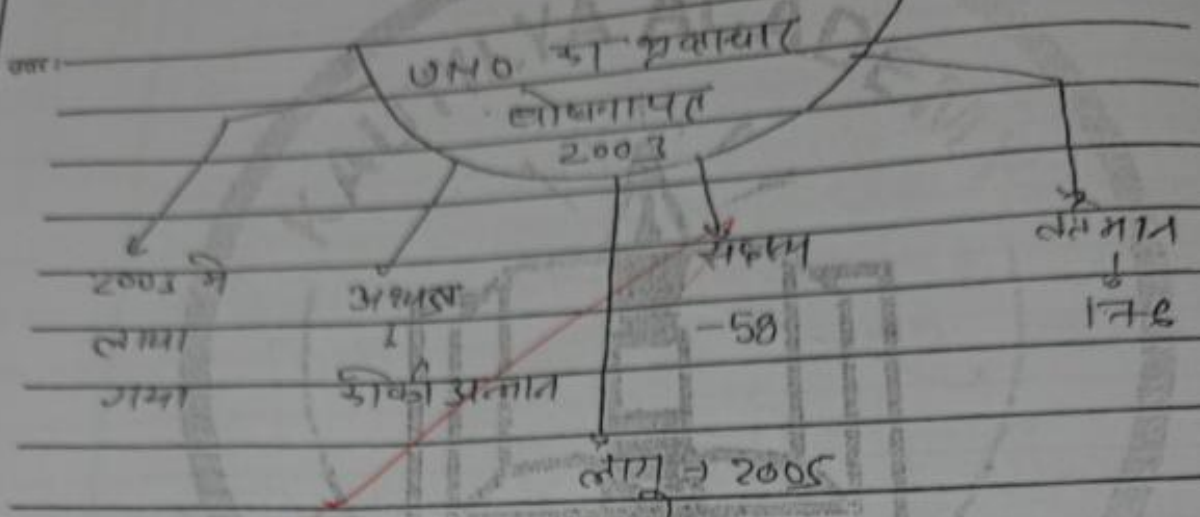 उत्तर:-
UNO का भ्रष्टाचार
घोषणापत्र
2003
2003 में
लाया
गया
अध्यक्ष
कोफी अन्नान
सदस्य
-58
वर्तमान
लागू → 2005